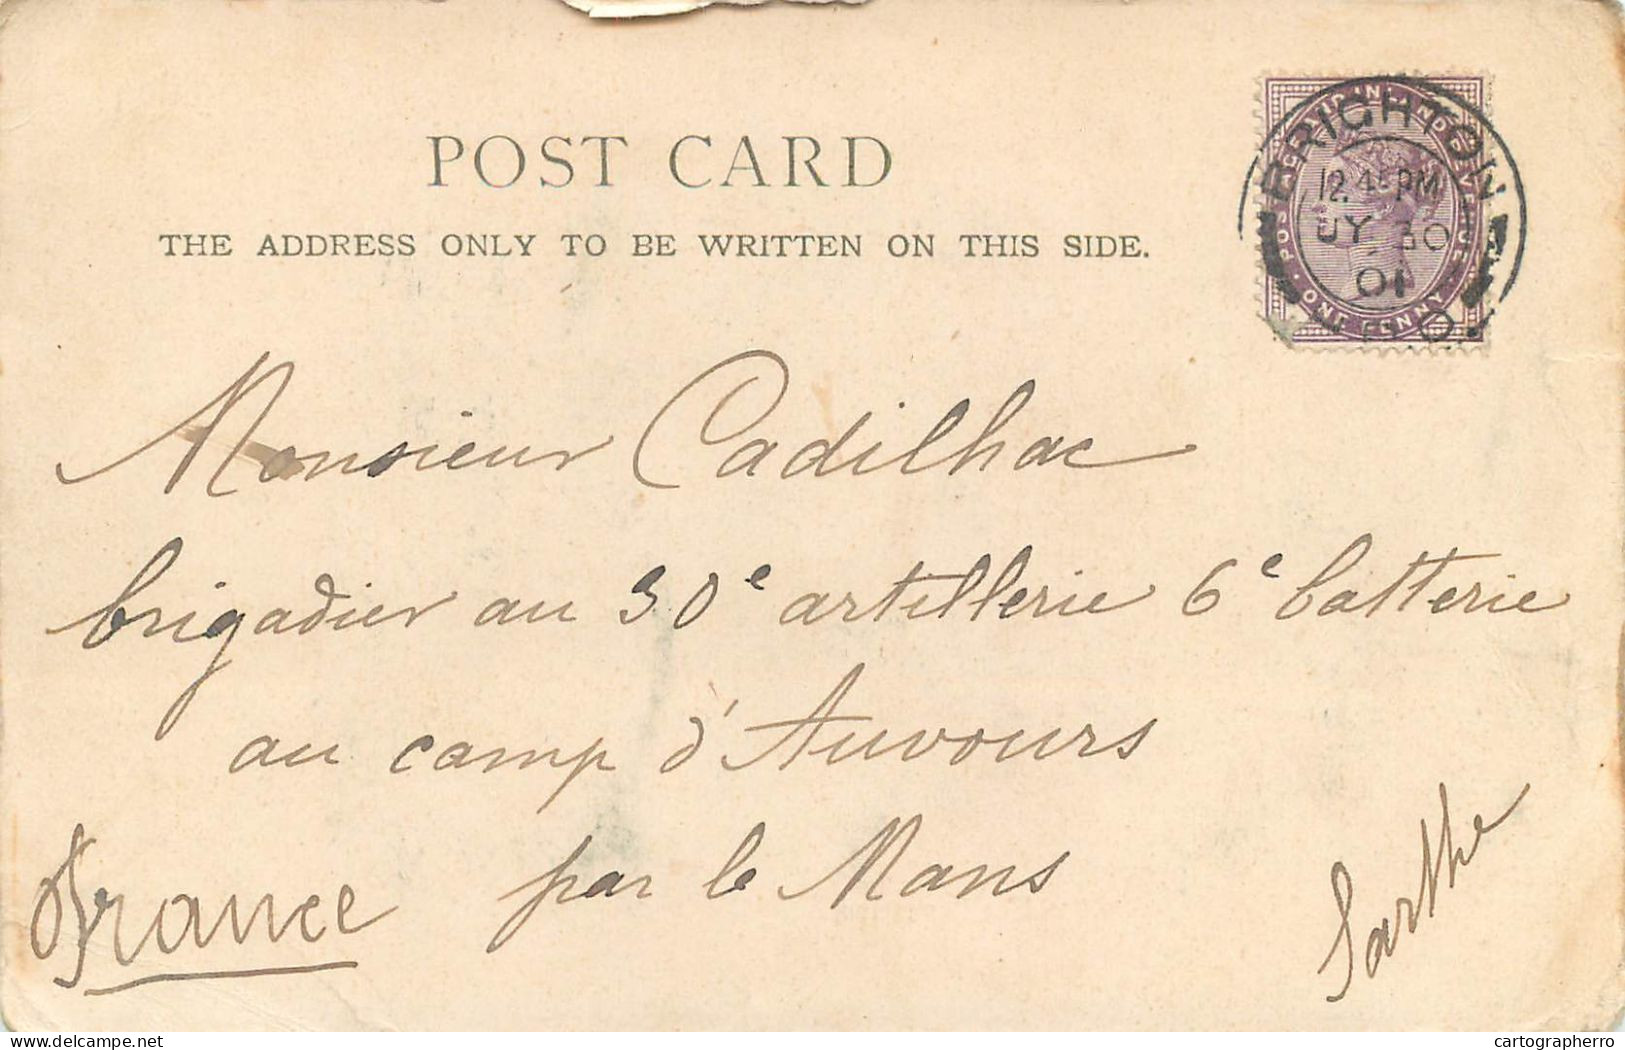 POST CARD
THE ADDRESS ONLY TO BE WRITTEN ON THIS SIDE.
POSTAGE AND INLAND REVENUE
ONE PENNY
BRIGHTON
12.4 PM
JY 30
01
Monsieur Cadilhac
brigadier au 30e artillerie 6e batterie
au camp d'Auvours
par le Mans
Sarthe
France
delcampe.net
cartographerro